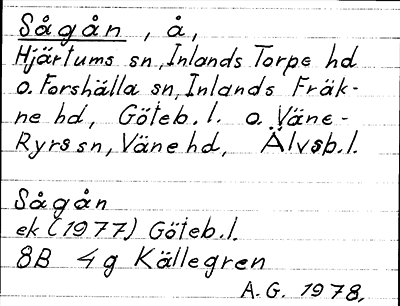 Sågån, å,
Hjärtums sn, Inlands Torpe hd
o. Forshälla sn, Inlands Fräk-
ne hd, Göteb. l. o. Väne-
Ryrs sn, Väne hd, Älvsb. l.
Sågån
ek (1977) Göteb. l.
8B 4g Källegren
A. G. 1978,